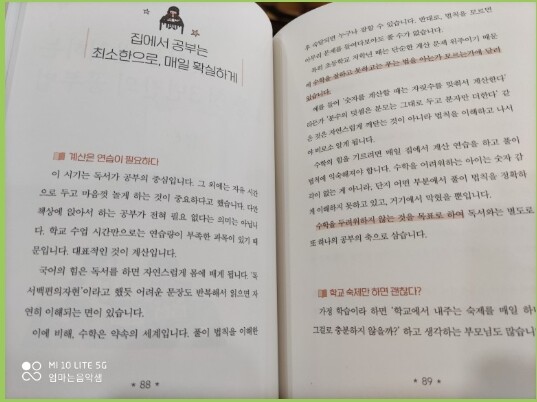 집에서 공부는
최소한으로, 매일 확실하게
계산은 연습이 필요하다
이 시기는 독서가 공부의 중심입니다. 그 외에는 자유 시간
으로 두고 마음껏 놀게 하는 것이 중요하다고 했습니다. 다만
책상에 앉아서 하는 공부가 전혀 필요 없다는 의미는 아닙니
다. 학교 수업 시간만으로는 연습량이 부족한 과목이 있기 때
문입니다. 대표적인 것이 계산입니다.
국어의 힘은 독서를 하면 자연스럽게 몸에 배게 됩니다. '독
서백편의자현'이라고 했듯 어려운 문장도 반복해서 읽으면 자
연히 이해되는 면이 있습니다.
이에 비해, 수학은 약속의 세계입니다. 풀이 법칙을 이해한
MI 10 LITE 5G
엄마는음악샘
* 88 *
후 사용되면 누구나 잘할 수 있습니다. 반대로, 법칙을 모르면
아무리 문제를 들여다보아도 풀 수가 없습니다.
특히 초등학교 저학년 때는 단순한 계산 문제 위주이기 때문
에 수학을 잘하고 못하고는 푸는 법을 아는가 모르는가에 달려
있습니다.
예를 들어 '숫자를 계산할 때는 자릿수를 맞춰서 계산한다'
다든가 '분수의 덧셈은 분모는 그대로 두고 분자만 더한다' 같
은 것은 자연스럽게 깨닫는 것이 아니라 법칙을 이해하고 나서
야 비로소 알게 됩니다.
수학의 힘을 기르려면 매일 집에서 계산 연습을 하고 풀이
법칙에 익숙해져야 합니다. 수학을 어려워하는 아이는 숫자 감
각이 없는 게 아니라, 단지 어떤 부분에서 풀이 법칙을 정확하
게 이해하지 못하고 있고, 거기에서 막혔을 뿐입니다.
수학을 두려워하지 않는 것을 목표로 하여 독서와는 별도로
또 하나의 공부의 축으로 삼습니다.
학교 숙제만 하면 괜찮다?
가정 학습이라 하면 '학교에서 내주는 숙제를 매일 하니
그걸로 충분하지 않을까?' 하고 생각하는 부모님도 많습니
* 89 *